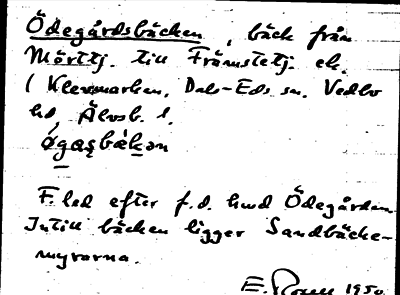 Ödegårdsbäcken, bäck från
Mörttj. till Främstetj. ek.
( Klevmarken, Dals-Eds sn. Vedbo
hd, Älvsb. l.
øgaşbäkən
F. led efter f.d. hmd Ödegården
Intill bäcken ligger Sandbäcke-
myrarna.
E. 1950